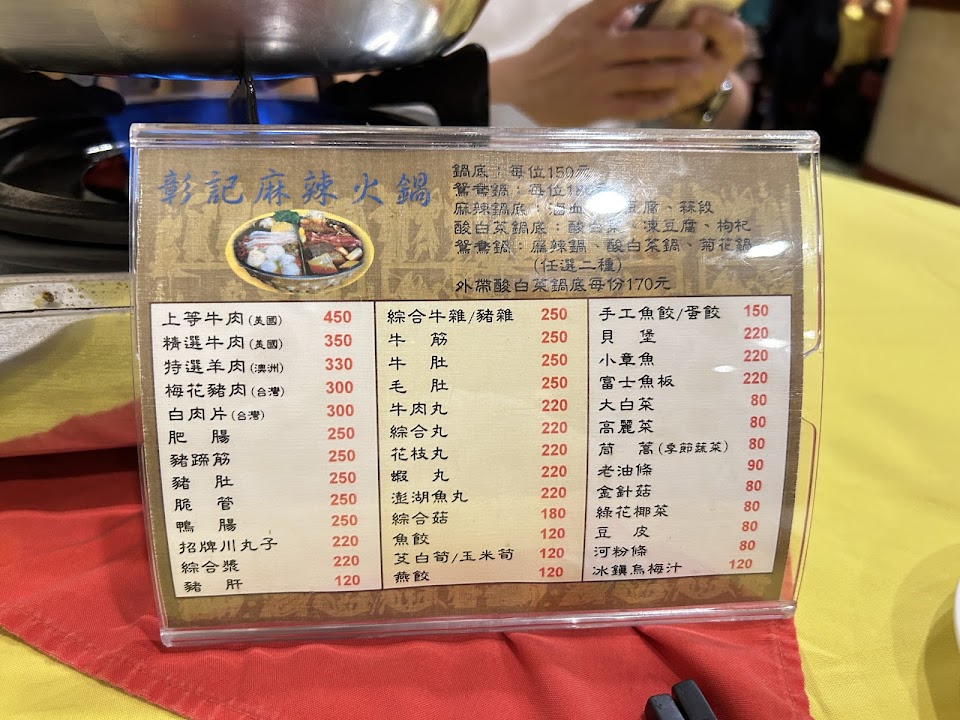 彰記麻辣火鍋
鍋底：每位150元
鴛鴦鍋：每位180元
麻辣鍋底：鴨血、豆腐、蒜段
酸白菜鍋底：酸白菜、凍豆腐、枸杞
鴛鴦鍋：麻辣鍋、酸白菜鍋、菊花鍋
(任選二種)
外帶酸白菜鍋底每份170元
上等牛肉(美國) 450
精選牛肉(美國) 350
特選羊肉(澳洲) 330
梅花豬肉(台灣) 300
白肉片(台灣) 300
肥 腸 250
豬蹄筋 250
豬 肚 250
脆 管 250
鴨 腸 250
招牌川丸子 220
綜合漿 220
豬 肝 120
綜合牛雜/豬雜 250
牛 筋 250
牛 肚 250
毛 肚 250
牛肉丸 220
綜合丸 220
花枝丸 220
蝦 丸 220
澎湖魚丸 220
綜合菇 180
魚餃 120
茭白筍/玉米筍 120
燕餃 120
手工魚餃/蛋餃 150
貝 堡 220
小章魚 220
富士魚板 220
大白菜 80
高麗菜 80
茼 蒿(季節蔬菜) 80
老油條 90
金針菇 80
綠花椰菜 80
豆 皮 80
河粉條 80
冰鎮烏梅汁 120